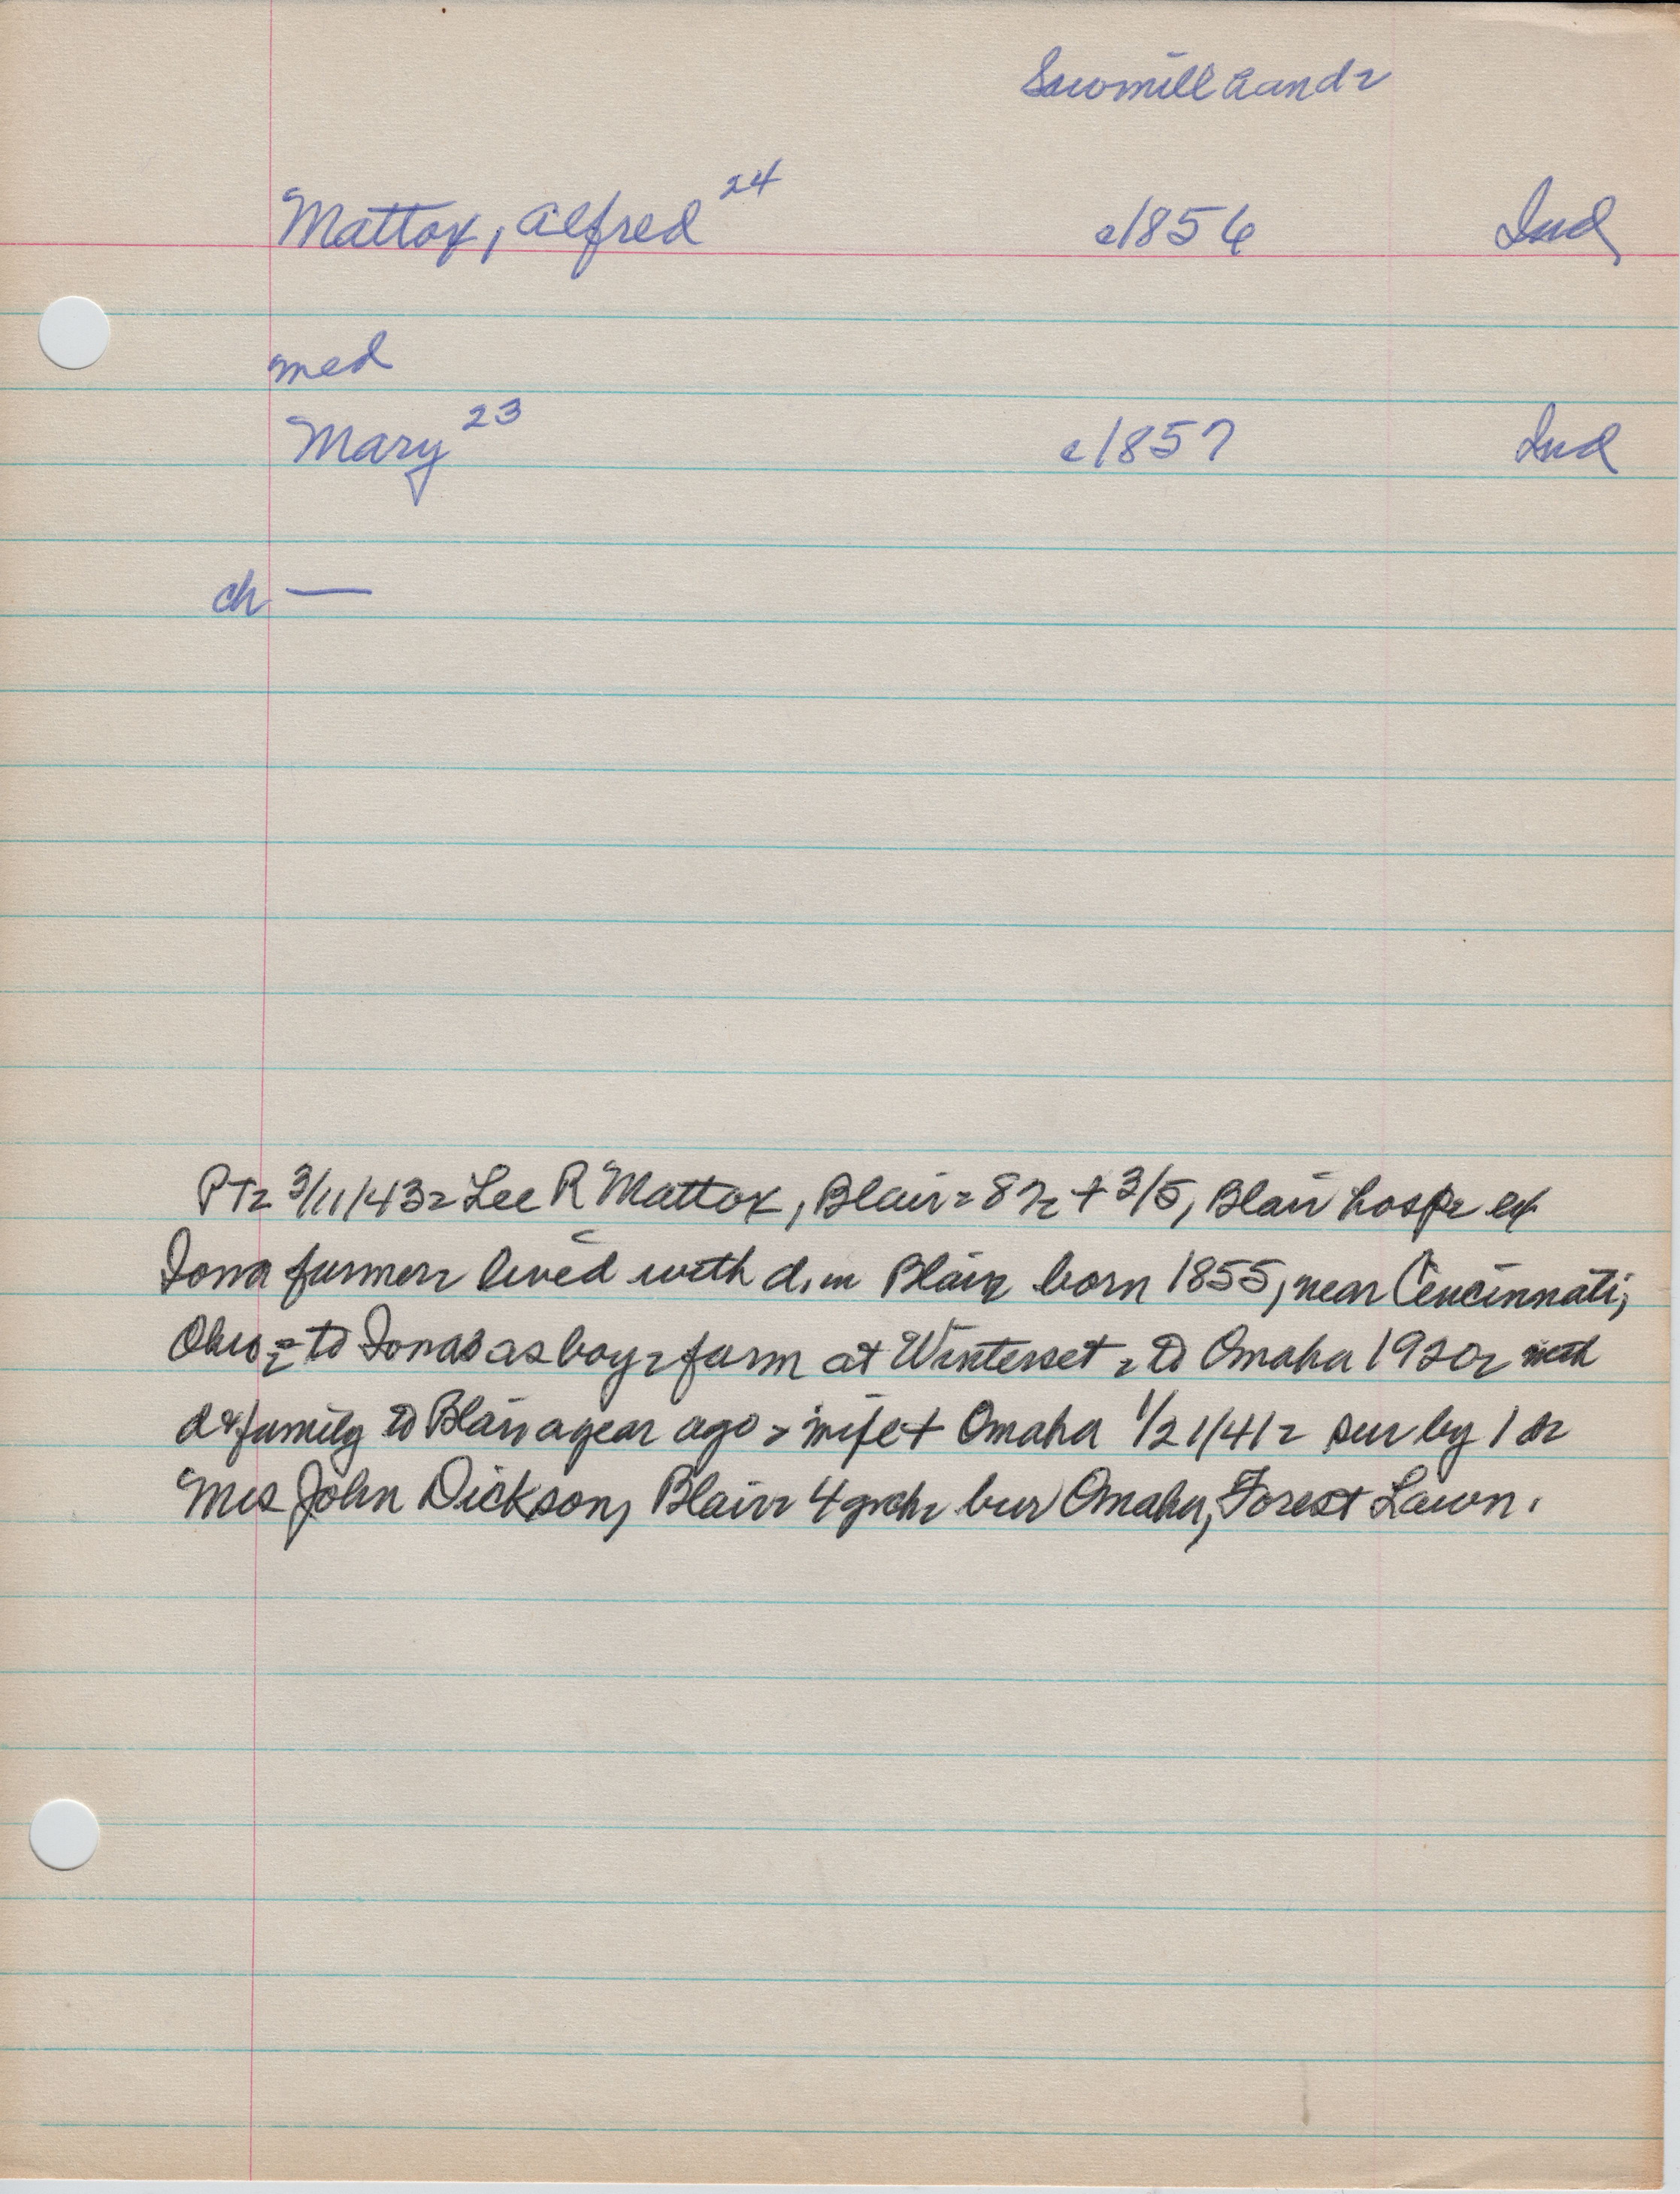 Sawmill hand-
Mattox, Alfred 24 c1856 Ind
med
Mary 23 c1857 Ind
ch —
PT- 3/11/43- Lee R Mattox, Blair- 87- + 3/5, Blair hosp- ex
Iowa farmer- lived with d, in Blair- born 1855, near Cincinnati,
Ohio- to Iowa as boy- farm at Winterset- to Omaha 1920- with
d & family to Blair a year ago- wife + Omaha 1/21/41- sur by 1 d-
Mrs John Dickson, Blair- 4 grch- bur Omaha, Forest Lawn.